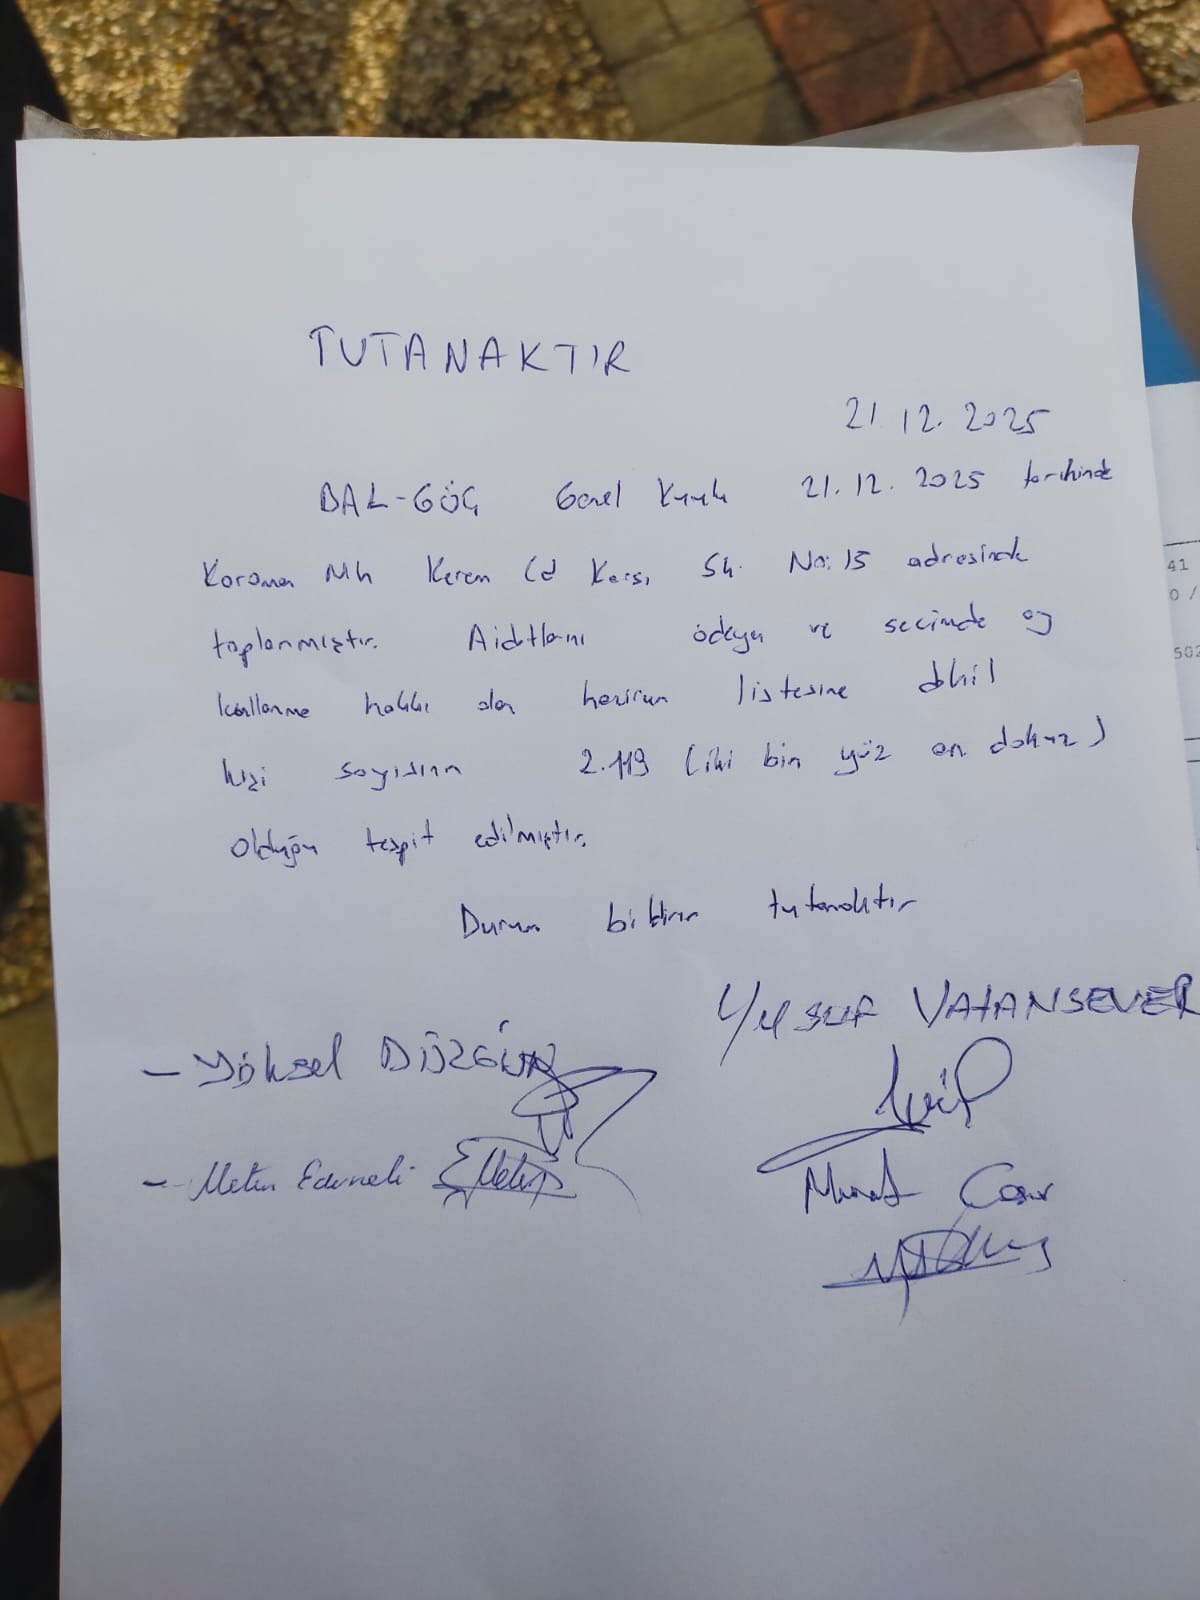 TUTANAKTIR
21.12.2025
BAL-GÖÇ Genel Kurulu 21.12.2025 tarihinde
Mh Kerem Cd Sk. No: 15 adresinde
toplanmıştır. Aidatlarını ödeyen ve seçimde oy
kullanma hakkı olan hazirun listesine dahil
kişi sayısının 2.119 (iki bin yüz on dokuz)
olduğu tespit edilmiştir.
Durum bildirir tutanaktır
YUSUF VATANSEVER
- Yüksel DÜZGÜN
- Metin Edirneli
Murat
41
0 /
502